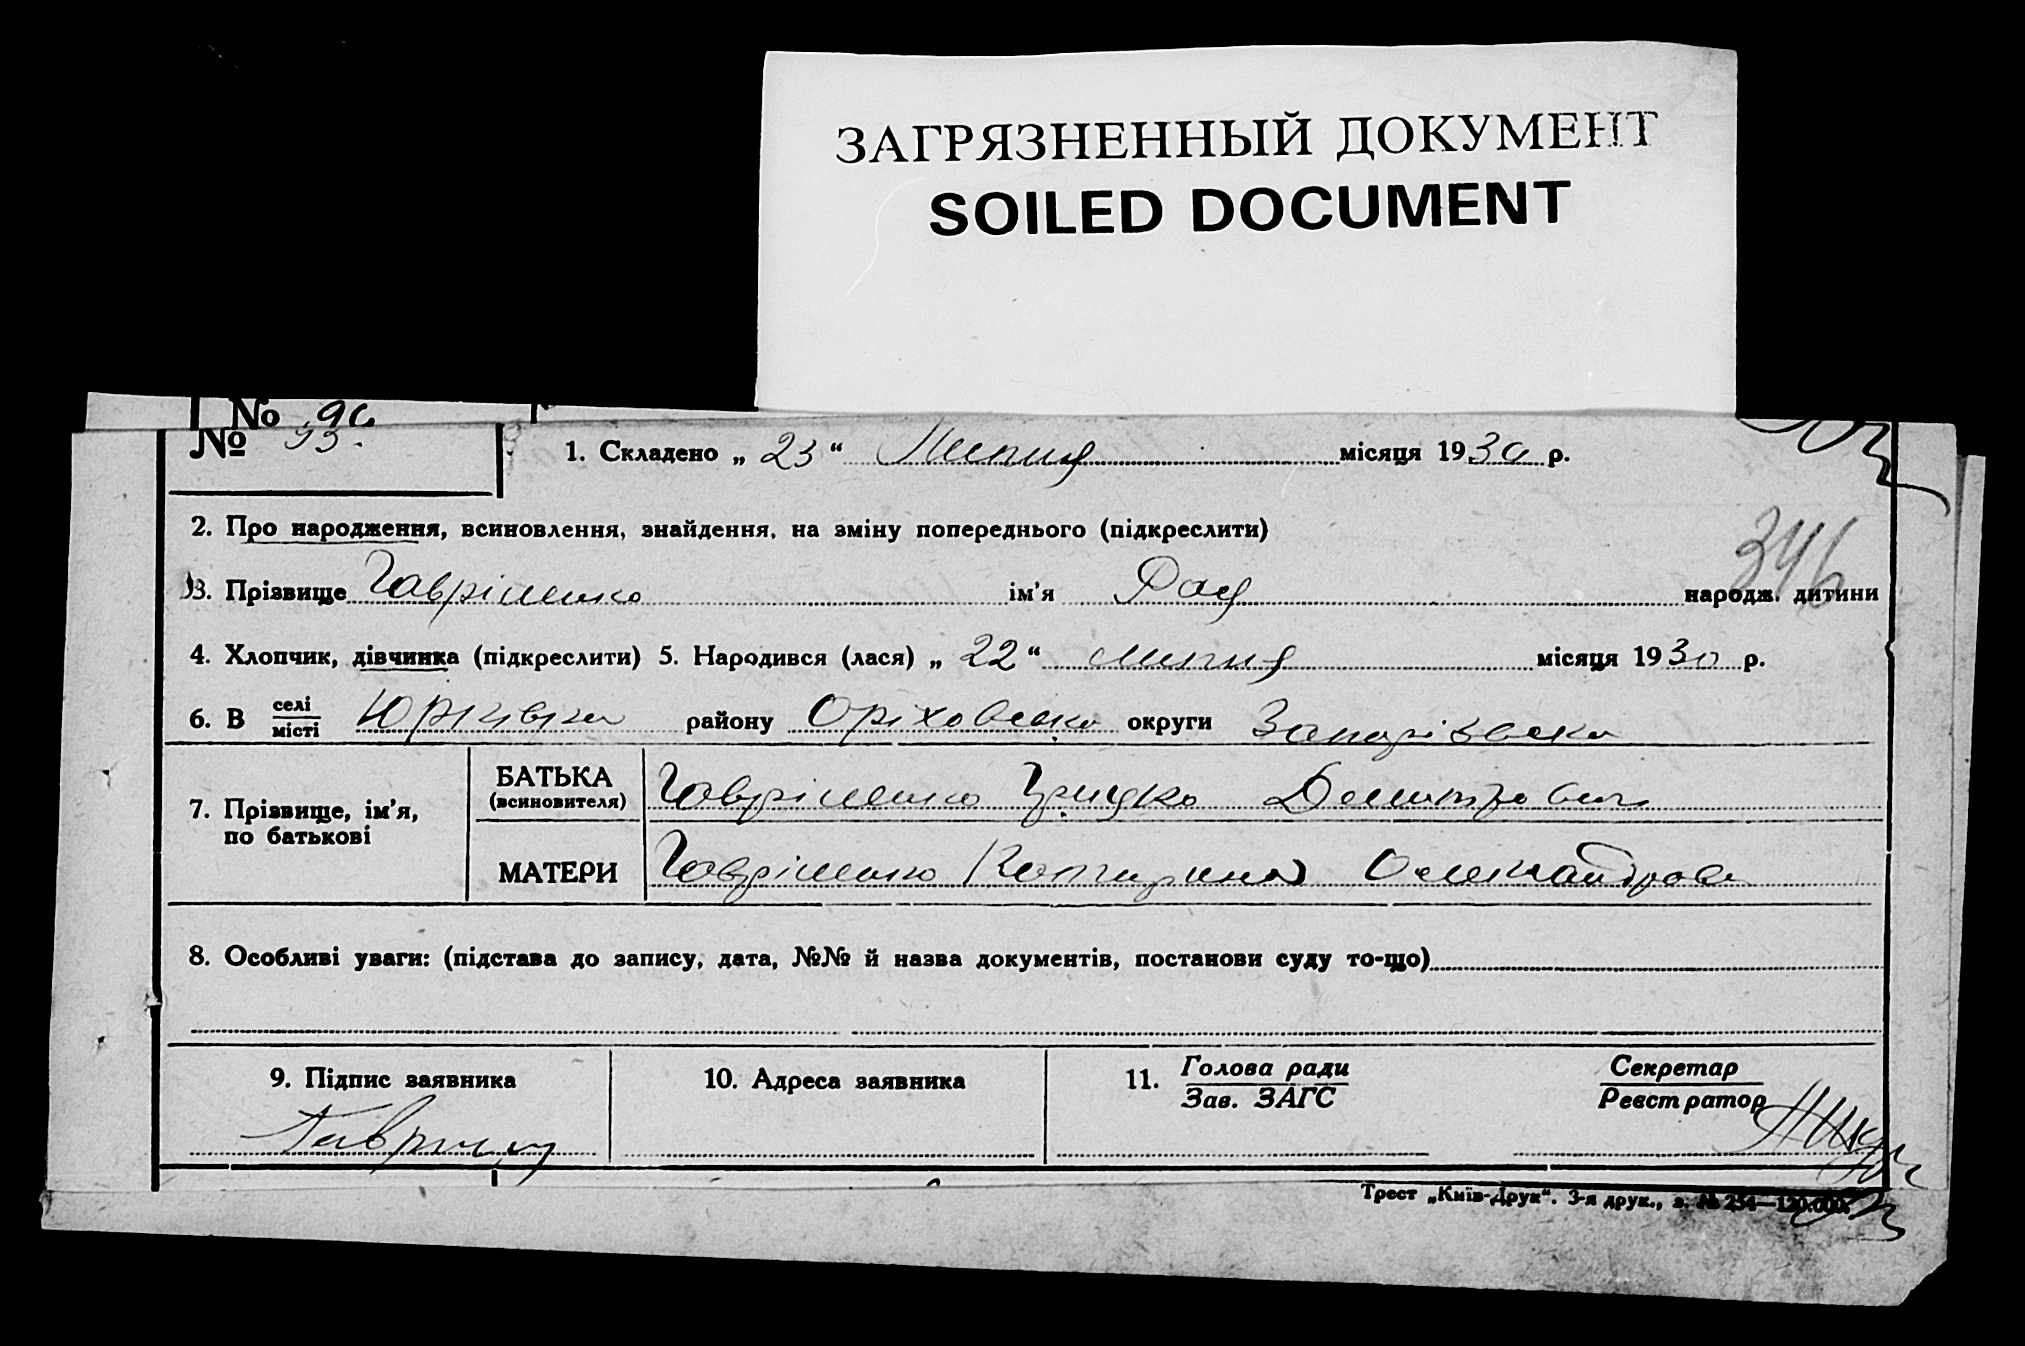 ЗАГРЯЗНЕННЫЙ ДОКУМЕНТ
SOILED DOCUMENT
№ 96
№ 93.
1. Складено „ 23 “ Липня місяця 1930 р.
2. Про народження, всиновлення, знайдення, на зміну попереднього (підкреслити)
346
3. Прізвище Гавріленко ім’я Рая народж. дитини
4. Хлопчик, дівчинка (підкреслити) 5. Народився (лася) „ 22 “ липня місяця 1930 р.
6. В селі місті Юрківка району Оріховсько округи Запорізська
7. Прізвище, ім’я, по батькові
БАТЬКА (всиновителя) Гавріленко Грицко Демитрович
МАТЕРИ Гавріленко Катирина Олександров
8. Особливі уваги: (підстава до запису, дата, №№ й назва документів, постанови суду то-що)
9. Підпис заявника
10. Адреса заявника
11. Голова ради Зав. ЗАГС
Секретар Реєстратор
Трест „Київ-Друк“. 3-я друк., з. № 254—120.000.